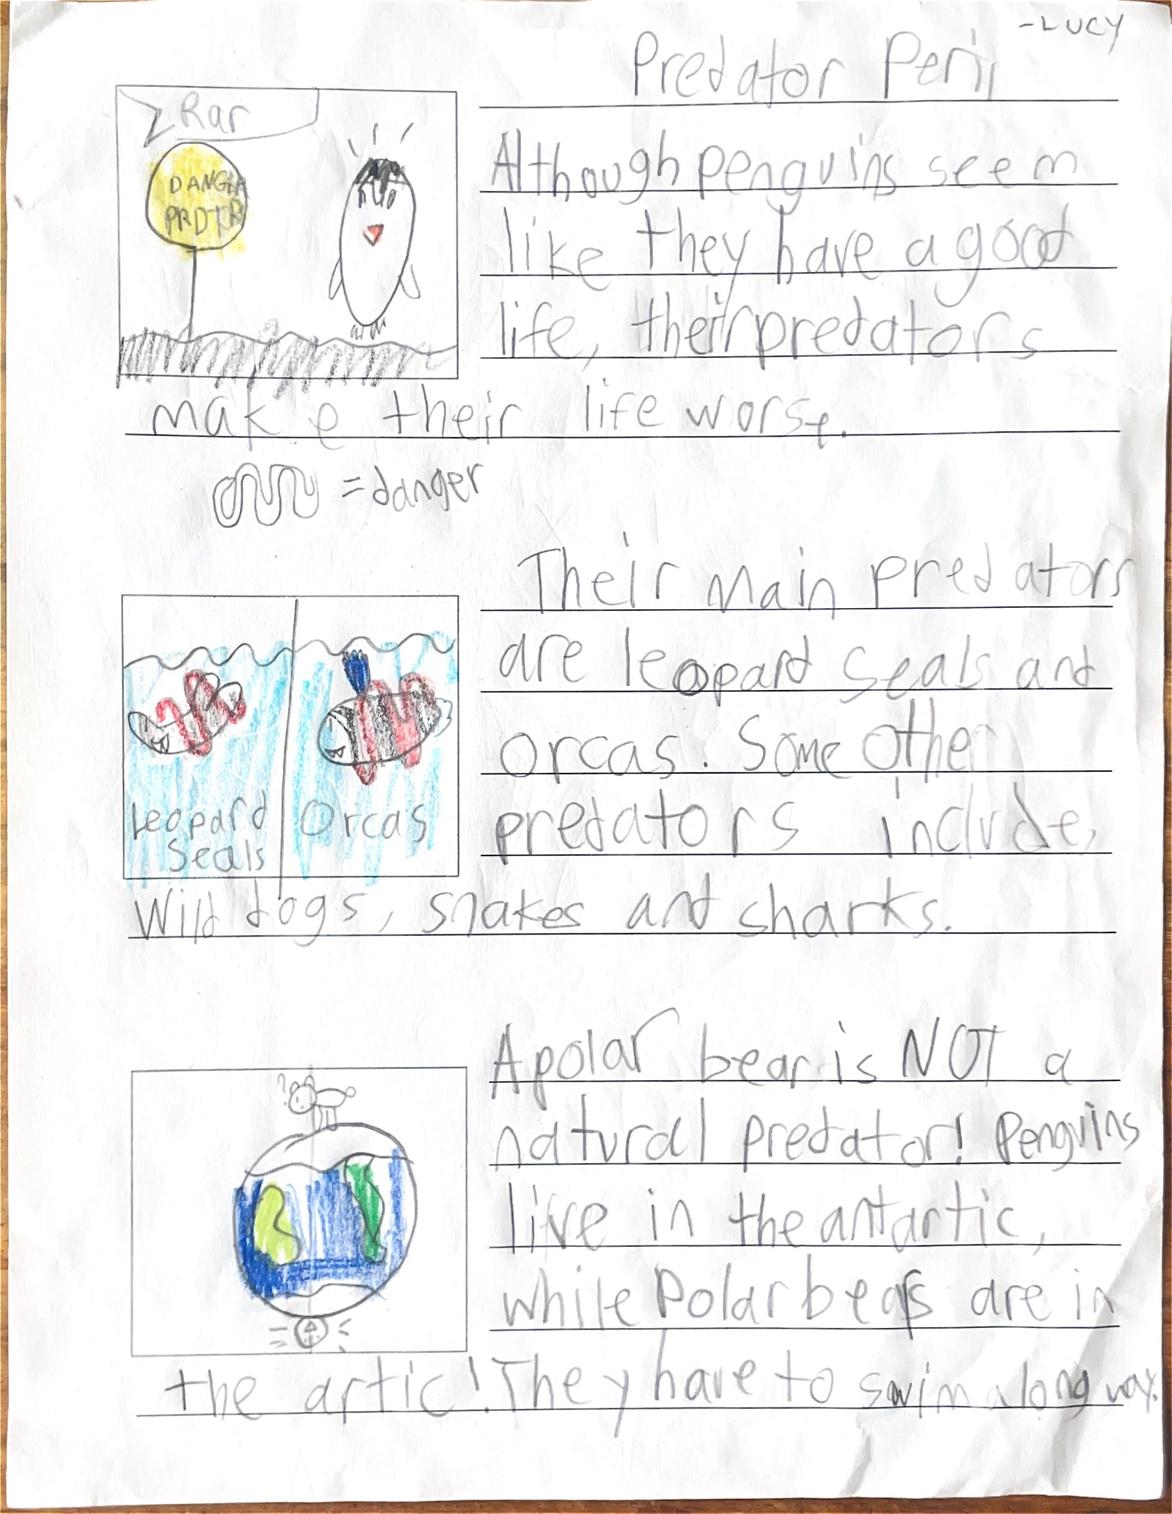 -LUCY
Predator Peril
Rar
DANGER
PRDTR
Although penguins seem
like they have a good
life, their predators
make their life worse.
= danger
Their main predators
are leopard seals and
orcas. Some other
predators include,
Wild dogs, snakes and sharks.
Leopard
Seals
Orcas
A polar bear is NOT a
natural predator! Penguins
live in the antartic,
while Polar bears are in
the artic! They have to swim a long way.